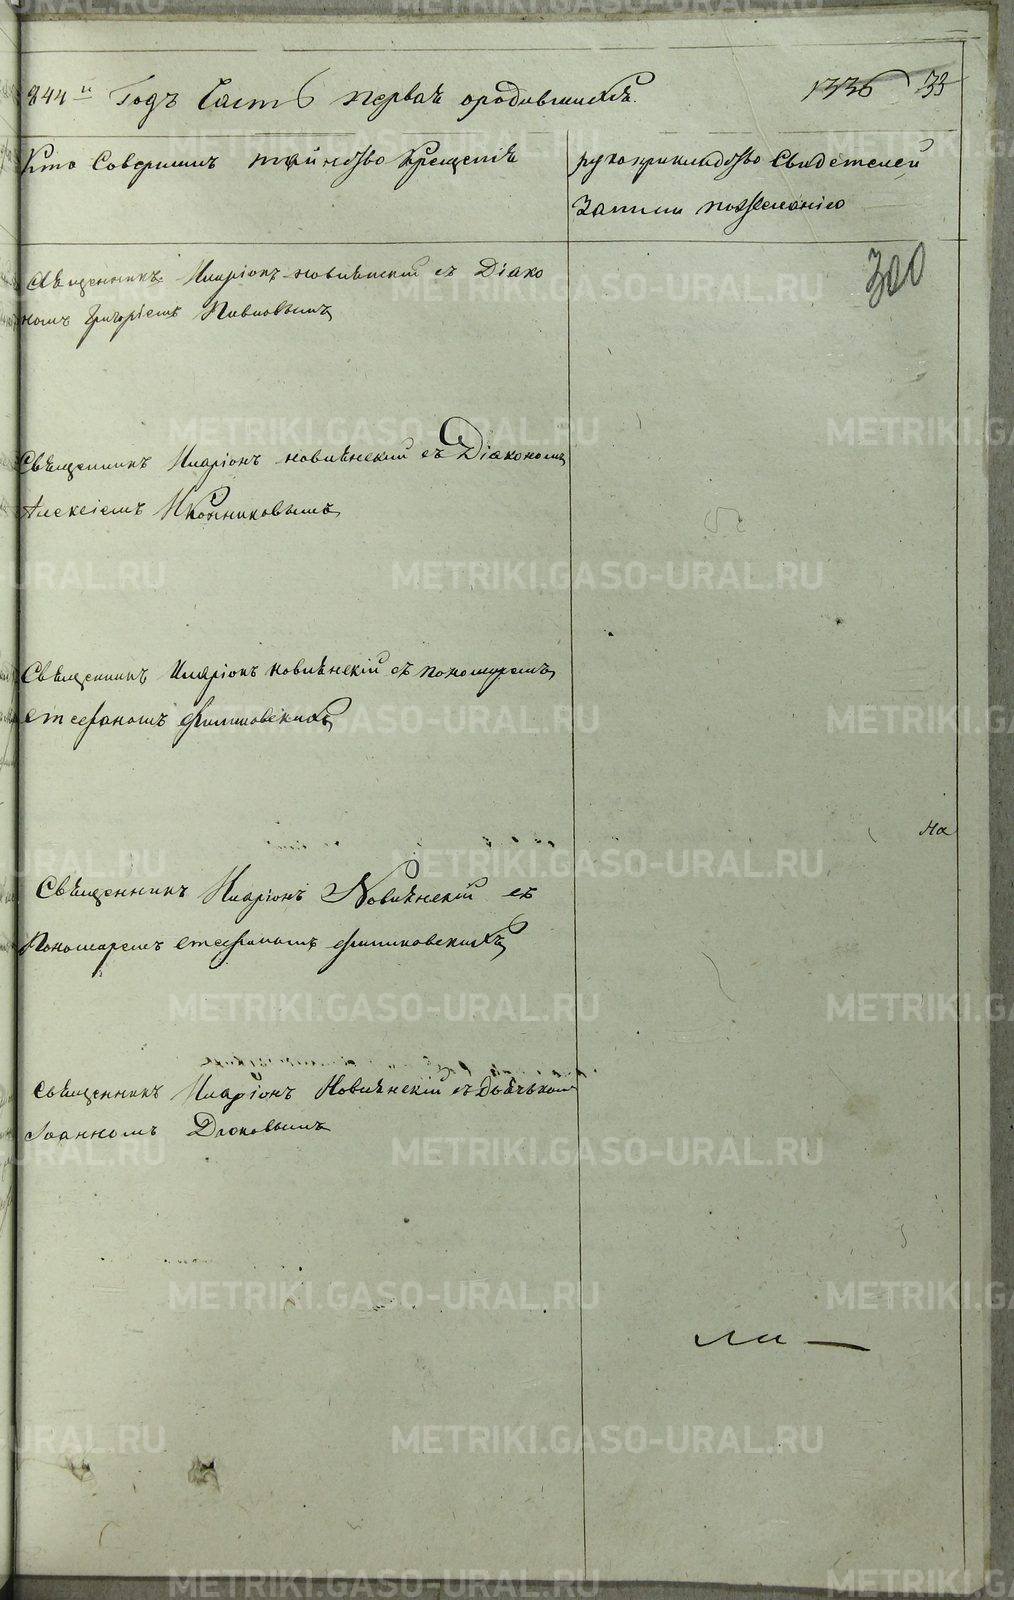 844й Годъ Часть первая ородившихся. 1336 33
Кто Совершилъ таинство Крещенія
рукоприкладство Свидетелей
Записи пожеланію
300
Священникъ Иларіонъ Новиѣнскій съ Діако
номъ Григоріемъ
Священникъ Иларіонъ Новиѣнскій съ Діакономъ
Алексіемъ Иконниковымъ
Священникъ Иларіонъ Новиѣнскій съ пономаремъ
Стефаномъ Филиповскихъ
на
Священникъ Иларіонъ Новиѣнскій съ
Пономаремъ Стефаномъ Филиповскихъ
Священникъ Иларіонъ Новиѣнскій съ Дьячькомъ
Іоанномъ Дюковымъ
ли —
METRIKI.GASO-URAL.RU